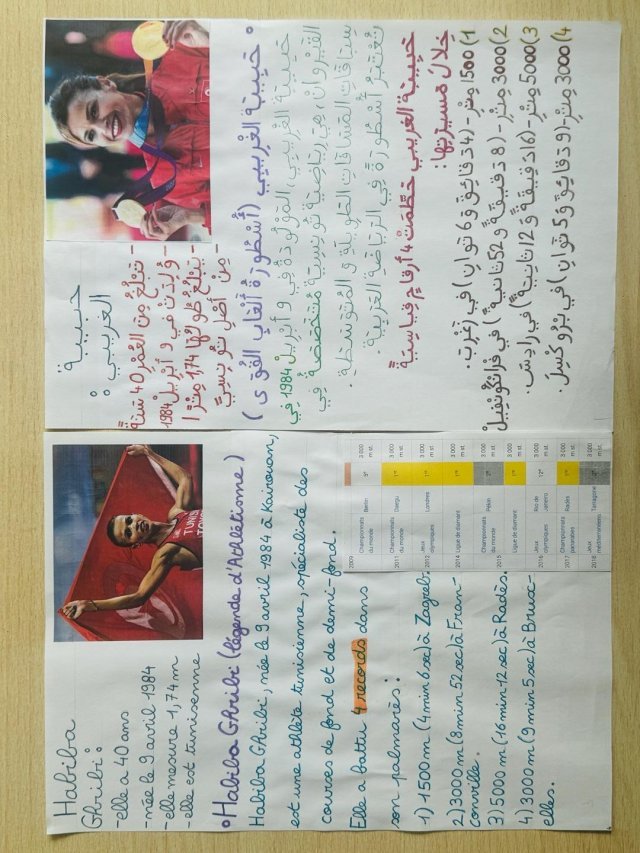 Habiba
Ghribi:
-elle a 40 ans
-née le 9 avril 1984
-elle mesure 1,74 m
-elle est tunisenne
TUNIS
•Habiba Ghribi (légende d'Athlétisme)
Habiba Ghribi, née le 9 avril 1984 à Kairouan,
est une athlète tunisienne, spécialiste des
courses de fond et de demi-fond.
Elle a battu 4 records dans
son palmarès:
1) 1500 m (4 min 6 sec) à Zagreb.
2) 3000 m (8 min 52 sec) à Fran-
conville.
3) 5000 m (16 min 12 sec) à Radès.
4) 3000 m (9 min 5 sec) à Bruxe-
elles.
2009 Championnats du monde Berlin 3 000 m st.
2011 Championnats du monde Daegu 1re 3 000 m st.
2012 Jeux olympiques Londres 1re 3 000 m st.
2014 Ligue de diamant 3 000 m st.
2015 Championnats du monde Pékin 2e 3 000 m st.
Ligue de diamant 1re 3 000 m st.
2016 Jeux olympiques Rio de Janeiro 12e 3 000 m st.
2017 Championnats panarabes Radès 1re 3 000 m st.
2018 Jeux méditerranéens Tarragone 2e 3 000 m st.
حبيبة
الغريبي:
- تبلغ من العمر 40 سنة
- ولدت في 9 أبريل 1984
- تبلغ طولها 1,74 مترا
- من أصل تونسي
• حبيبة الغريبي (أسطورة ألعاب القوى)
حبيبة الغريبي، المولودة في 9 أبريل 1984 في
القيروان، هي رياضية تونسية متخصصة في
سباقات المسافات الطويلة والمتوسطة.
تعتبر أسطورة في الرياضة العربية.
حبيبة الغريبي حطمت 4 أرقام قياسية
خلال مسيرتها:
1) 1500 متر - (4 دقائق و 6 ثوان) في زغرب.
2) 3000 متر - (8 دقيقة و 52 ثانية) في فرانكونفيل
3) 5000 متر - (16 دقيقة و 12 ثانية) في رادس.
4) 3000 متر (9 دقائق و 5 ثوان) في بروكسل.